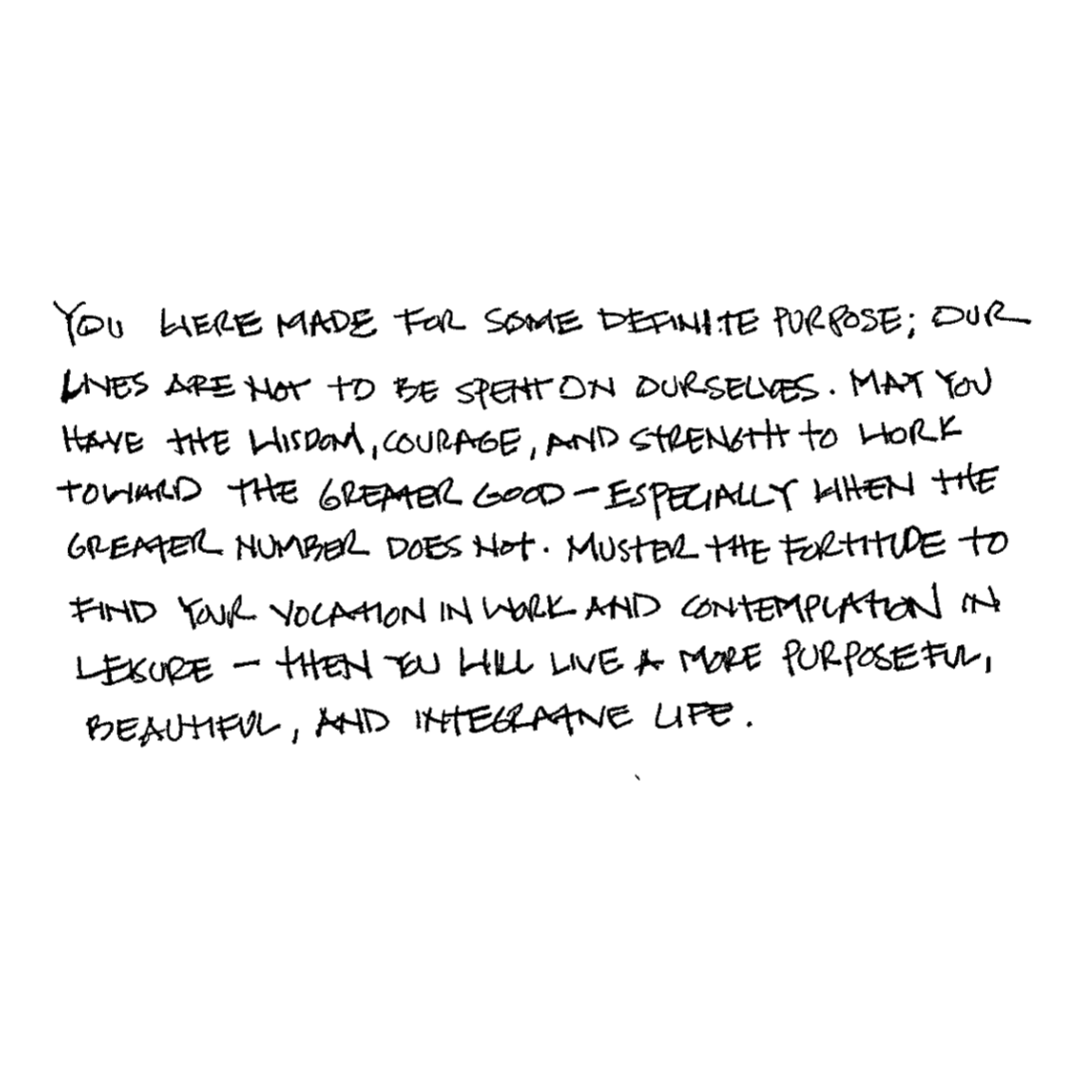 YOU WERE MADE FOR SOME DEFINITE PURPOSE; OUR
LIVES ARE NOT TO BE SPENT ON OURSELVES. MAY YOU
HAVE THE WISDOM, COURAGE, AND STRENGTH TO WORK
TOWARD THE GREATER GOOD – ESPECIALLY WHEN THE
GREATER NUMBER DOES NOT. MUSTER THE FORTITUDE TO
FIND YOUR VOCATION IN WORK AND CONTEMPLATION IN
LEISURE – THEN YOU WILL LIVE A MORE PURPOSEFUL,
BEAUTIFUL, AND INTEGRATIVE LIFE.